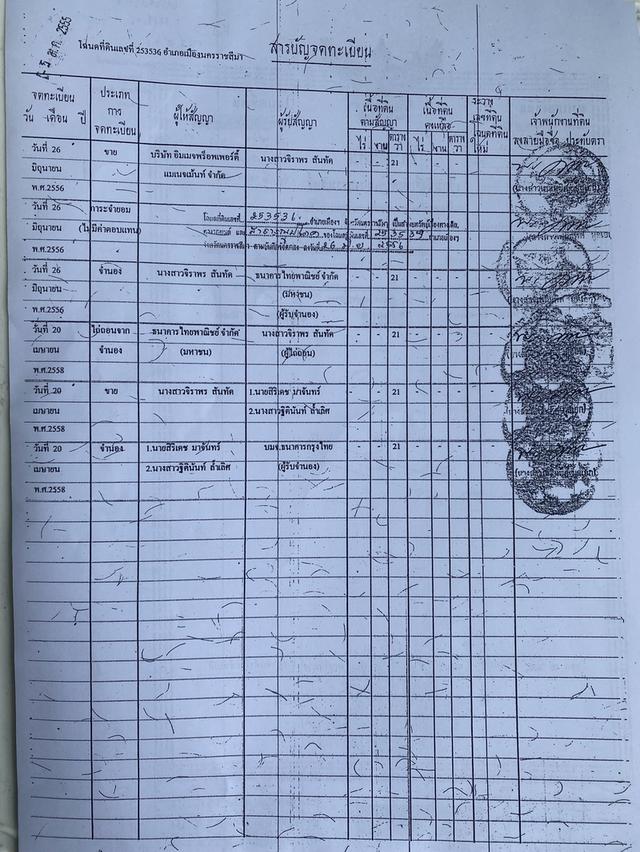 โฉนดที่ดินเลขที่ 253536 อำเภอเมืองนครราชสีมา
สารบัญจดทะเบียน
จดทะเบียน
วัน เดือน ปี
ประเภท
การ
จดทะเบียน
ผู้ให้สัญญา
ผู้รับสัญญา
เนื้อที่ดิน
ตามสัญญา
ไร่ งาน ตาราง
วา
เนื้อที่ดิน
คงเหลือ
ไร่ งาน ตาราง
วา
ระวาง
เลขที่ดิน
โฉนดที่ดิน
ใหม่
เจ้าพนักงานที่ดิน
ลงลายมือชื่อ ประทับตรา
วันที่ 26 ขาย บริษัท อิมเมจพร็อพเพอร์ตี้ นางสาวจิราพร สันทัด - - 21 - - -
มิถุนายน แมเนจเม้นท์ จำกัด
พ.ศ.2556
วันที่ 26 ภาระจำยอม โฉนดที่ดินเลขที่ 253536
มิถุนายน (ไม่มีค่าตอบแทน)
พ.ศ.2556
วันที่ 26 จำนอง นางสาวจิราพร สันทัด ธนาคารไทยพาณิชย์ จำกัด - - 21 - - -
มิถุนายน (มหาชน)
พ.ศ.2556 (ผู้รับจำนอง)
วันที่ 20 ไถ่ถอนจาก ธนาคารไทยพาณิชย์ จำกัด นางสาวจิราพร สันทัด - - 21 - - -
เมษายน จำนอง (มหาชน) (ผู้ไถ่ถอน)
พ.ศ.2558
วันที่ 20 ขาย นางสาวจิราพร สันทัด 1.นายสิริเดช มาจันทร์ - - 21 - - -
เมษายน 2.นางสาวฐิตินันท์ ล้ำเลิศ
พ.ศ.2558
วันที่ 20 จำนอง 1.นายสิริเดช มาจันทร์ บมจ.ธนาคารกรุงไทย - - 21 - - -
เมษายน 2.นางสาวฐิตินันท์ ล้ำเลิศ (ผู้รับจำนอง)
พ.ศ.2558